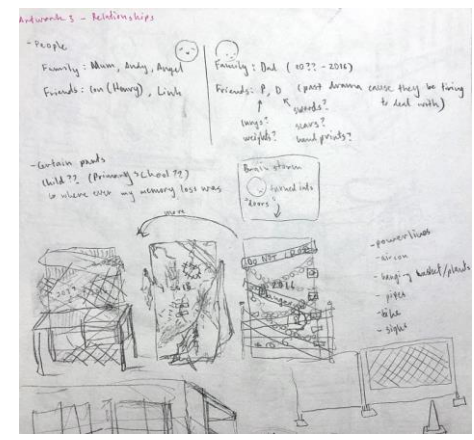 Artwork 3 - Relationships
- People
Family: Mum, Andy, Angel
Friends: Con (Henry), Linh
Family: Dad (20?? - 2016)
Friends: P, D (past drama cause they be tiring
to deal with)
swords?
scars?
hand prints?
weights?
- Certain parts
Child?? (Primary School??)
or where ever my memory loss was
Brain storm
turned into
"doors"
move
DO NOT CROSS
2016
Danger
- powerlines
- aircon
- hanging basket/plants
- pipes
- bike
- signs